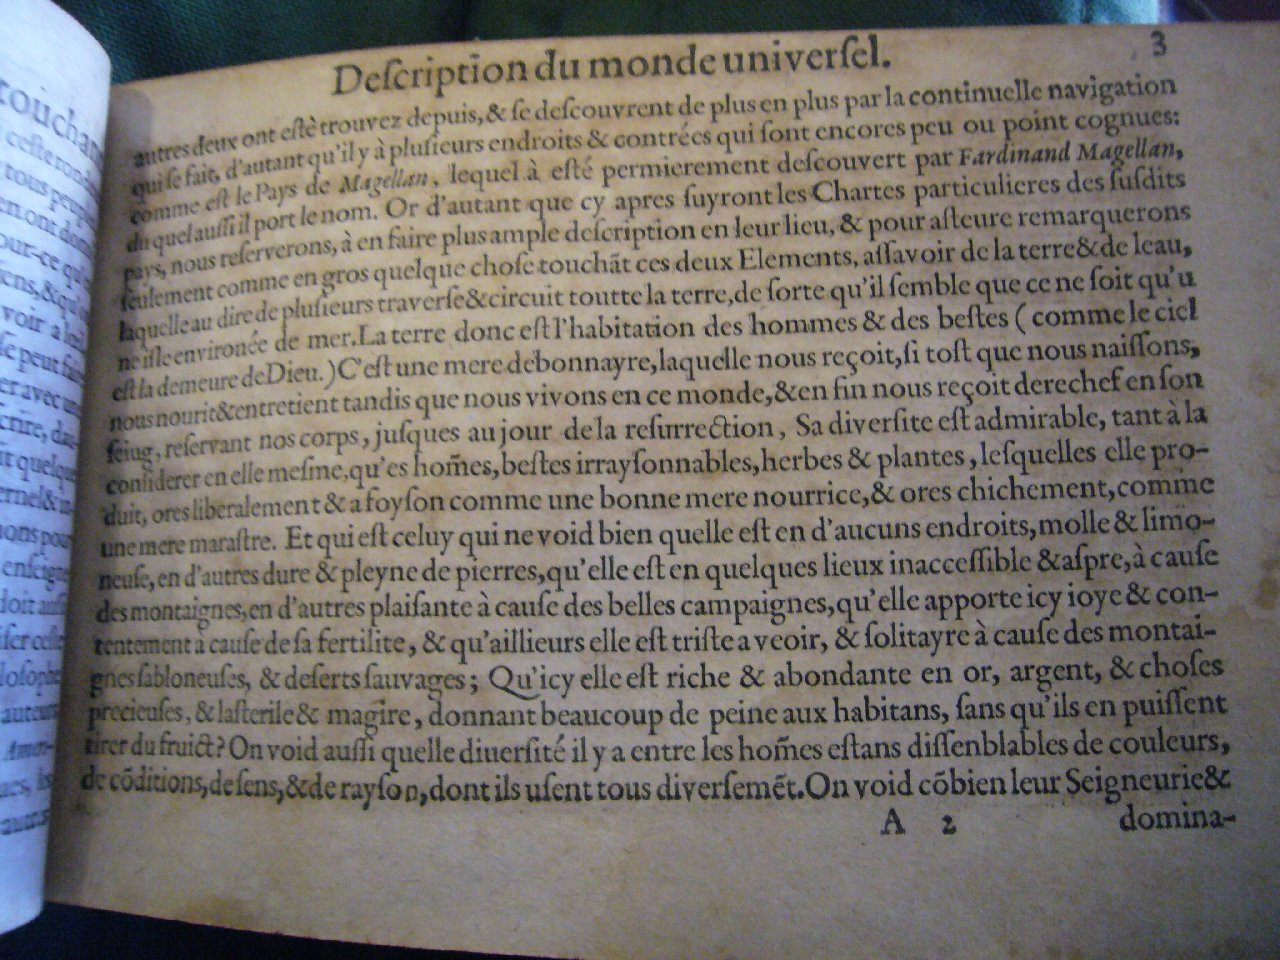 Deſcriptiõn du monde univerſel. 3
autres deux ont eſtè trouvez depuis, & ſe deſcouvrent de plus en plus par la continuelle navigation
qui ſe fait, d'autant qu'il y à pluſieurs endroits & contrées qui ſont encores peu ou point cognues:
comme eſt le Pays de Magellan, lequel à eſté permierement deſcouvert par Fardinand Magellan,
du quel auſſi il port le nom. Or d'autant que cy apres ſuyront les Chartes particulieres des ſuſdits
pays, nous reſerverons, à en faire plus ample deſcription en leur lieu, & pour aſteure remarquerons
ſeulement comme en gros quelque choſe touchãt ces deux Elements, aſſavoir de la terre & de leau,
laquelle au dire de pluſieurs traverſe & circuit toutte la terre, de ſorte qu'il ſemble que ce ne ſoit qu'u
ne iſle environée de mer. La terre donc eſt l'habitation des hommes & des beſtes (comme le ciel
eſt la demeure de Dieu.) C'eſt une mere debonnayre, laquelle nous reçoit, ſi toſt que nous naiſſons,
nous nourit & entretient tandis que nous vivons en ce monde, & en fin nous reçoit derechef en ſon
ſeiug, reſervant nos corps, juſques au jour de la reſurrection, Sa diverſite eſt admirable, tant à la
conſiderer en elle meſme, qu'es hom̃es, beſtes irrayſonnables, herbes & plantes, leſquelles elle pro-
duit, ores liberalement & a foyſon comme une bonne mere nourrice, & ores chichement, comme
une mere maraſtre. Et qui eſt celuy qui ne void bien quelle eſt en d'aucuns endroits, molle & limo-
neuſe, en d'autres dure & pleyne de pierres, qu'elle eſt en quelques lieux inacceſſible & aſpre, à cauſe
des montaignes, en d'autres plaiſante à cauſe des belles campaignes, qu'elle apporte icy ioye & con-
tentement à cauſe de ſa fertilite, & qu'aillieurs elle eſt triſte a veoir, & ſolitayre à cauſe des montai-
gnes ſabloneuſes, & deſerts ſauvages; Qu'icy elle eſt riche & abondante en or, argent, & choſes
precieuſes, & la ſterile & magire, donnant beaucoup de peine aux habitans, ſans qu'ils en puiſſent
tirer du fruict? On void auſſi quelle diuerſité il y a entre les hom̃es eſtans diſſenblables de couleurs,
de cõditions, de ſens, & de rayſon, dont ils uſent tous diverſemẽt. On void cõbien leur Seigneurie &
A 2 domina-